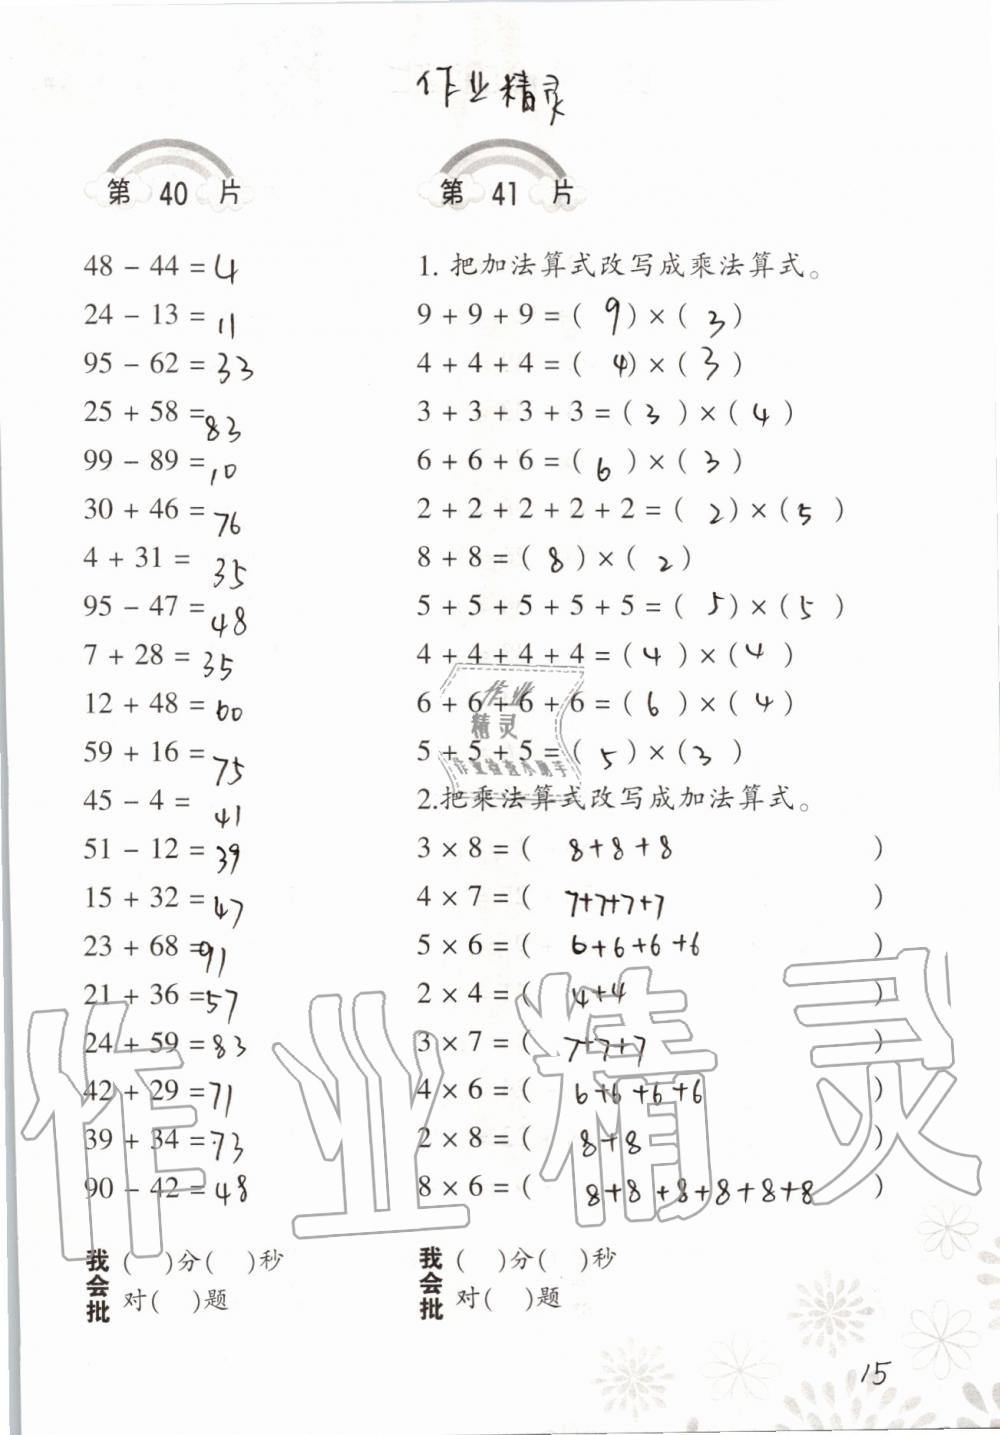 作业精灵
第 40 片
48 - 44 = 4
24 - 13 = 11
95 - 62 = 33
25 + 58 = 83
99 - 89 = 10
30 + 46 = 76
4 + 31 = 35
95 - 47 = 48
7 + 28 = 35
12 + 48 = 60
59 + 16 = 75
45 - 4 = 41
51 - 12 = 39
15 + 32 = 47
23 + 68 = 91
21 + 36 = 57
24 + 59 = 83
42 + 29 = 71
39 + 34 = 73
90 - 42 = 48
我会批
( )分( )秒
对( )题
第 41 片
1. 把加法算式改写成乘法算式。
9 + 9 + 9 = ( 9 ) × ( 3 )
4 + 4 + 4 = ( 4 ) × ( 3 )
3 + 3 + 3 + 3 = ( 3 ) × ( 4 )
6 + 6 + 6 = ( 6 ) × ( 3 )
2 + 2 + 2 + 2 + 2 = ( 2 ) × ( 5 )
8 + 8 = ( 8 ) × ( 2 )
5 + 5 + 5 + 5 + 5 = ( 5 ) × ( 5 )
4 + 4 + 4 + 4 = ( 4 ) × ( 4 )
6 + 6 + 6 + 6 = ( 6 ) × ( 4 )
5 + 5 + 5 = ( 5 ) × ( 3 )
作业
精灵
作业检查小助手
2. 把乘法算式改写成加法算式。
3 × 8 = ( 8+8+8 )
4 × 7 = ( 7+7+7+7 )
5 × 6 = ( 6+6+6+6 )
2 × 4 = ( 4+4 )
3 × 7 = ( 7+7+7 )
4 × 6 = ( 6+6+6+6 )
2 × 8 = ( 8+8 )
8 × 6 = ( 8+8+8+8+8+8 )
我会批
( )分( )秒
对( )题
作业精灵
15